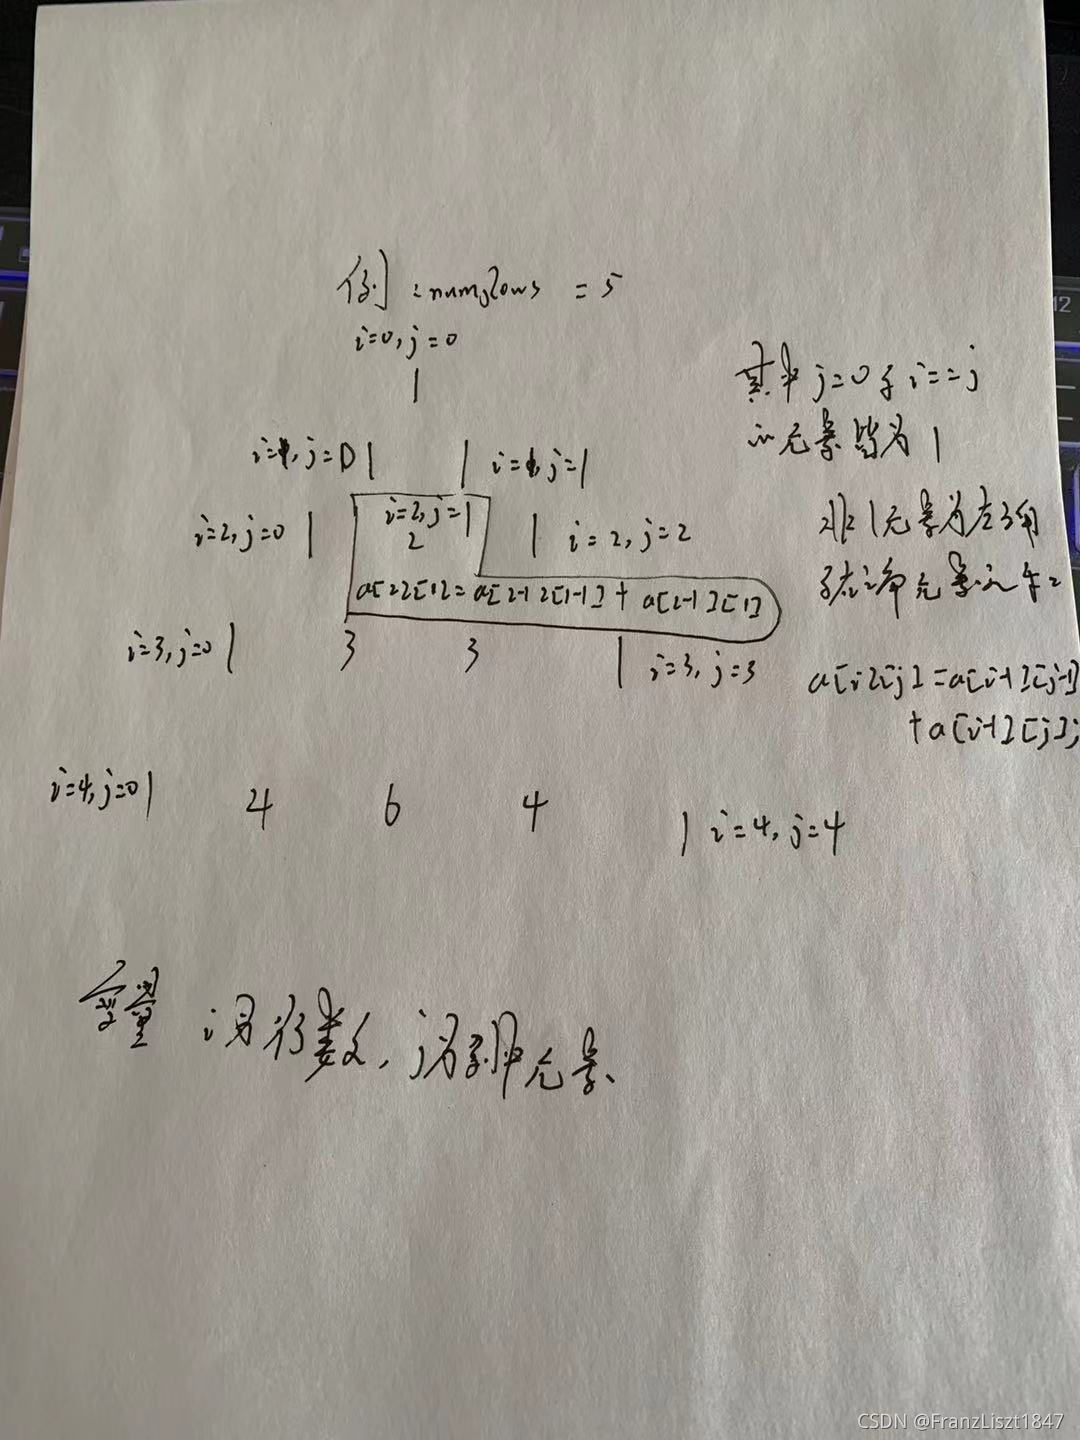 例:numRows = 5
i=0, j=0
1
i=1, j=0 1 1 i=1, j=1
i=2, j=0 1 i=2, j=1 1 i=2, j=2
2
a[2][1]=a[2-1][1-1]+a[2-1][1]
i=3, j=0 1 3 3 1 i=3, j=3
i=4, j=0 1 4 6 4 1 i=4, j=4
其中 j=0与i==j
的元素皆为1
非1元素为左上角
元素之和
a[i][j]=a[i-1][j-1]
+a[i-1][j];
变量 i为行数,j为列中元素、
12
CSDN @FranzLiszt1847